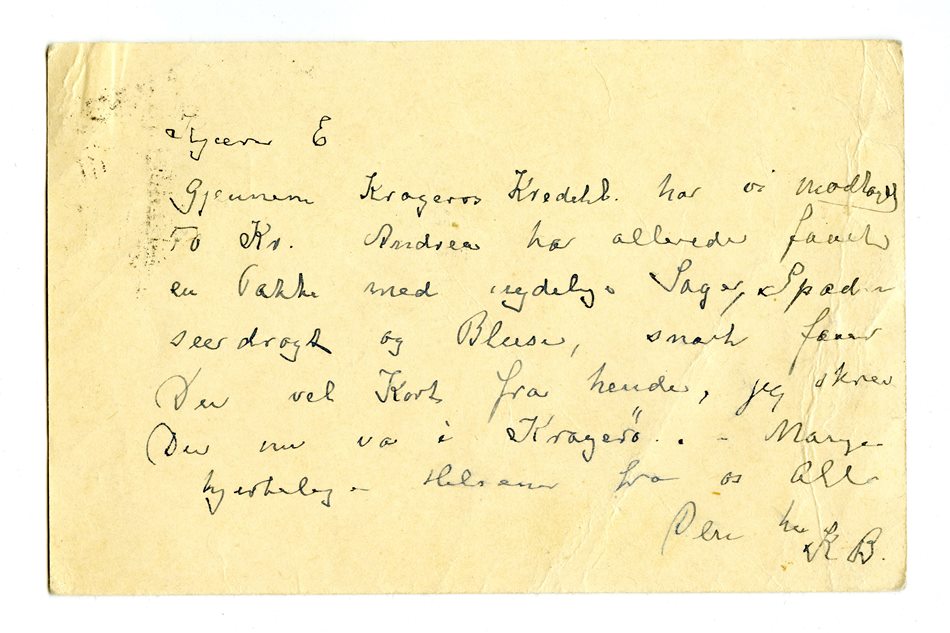 Kjære E
Gjennem Krageros Kreditb. har vi modtaget
To Kr. Andrea har allerede faaet
en Pakke med nydelige Sager, Spad
seerdragt og Bluse, snart faaer
De vel Kort fra hende, jeg skrev
De nu va i Kragerö. . - Mange
hjertelige Hilsener fra os Alle
K B.